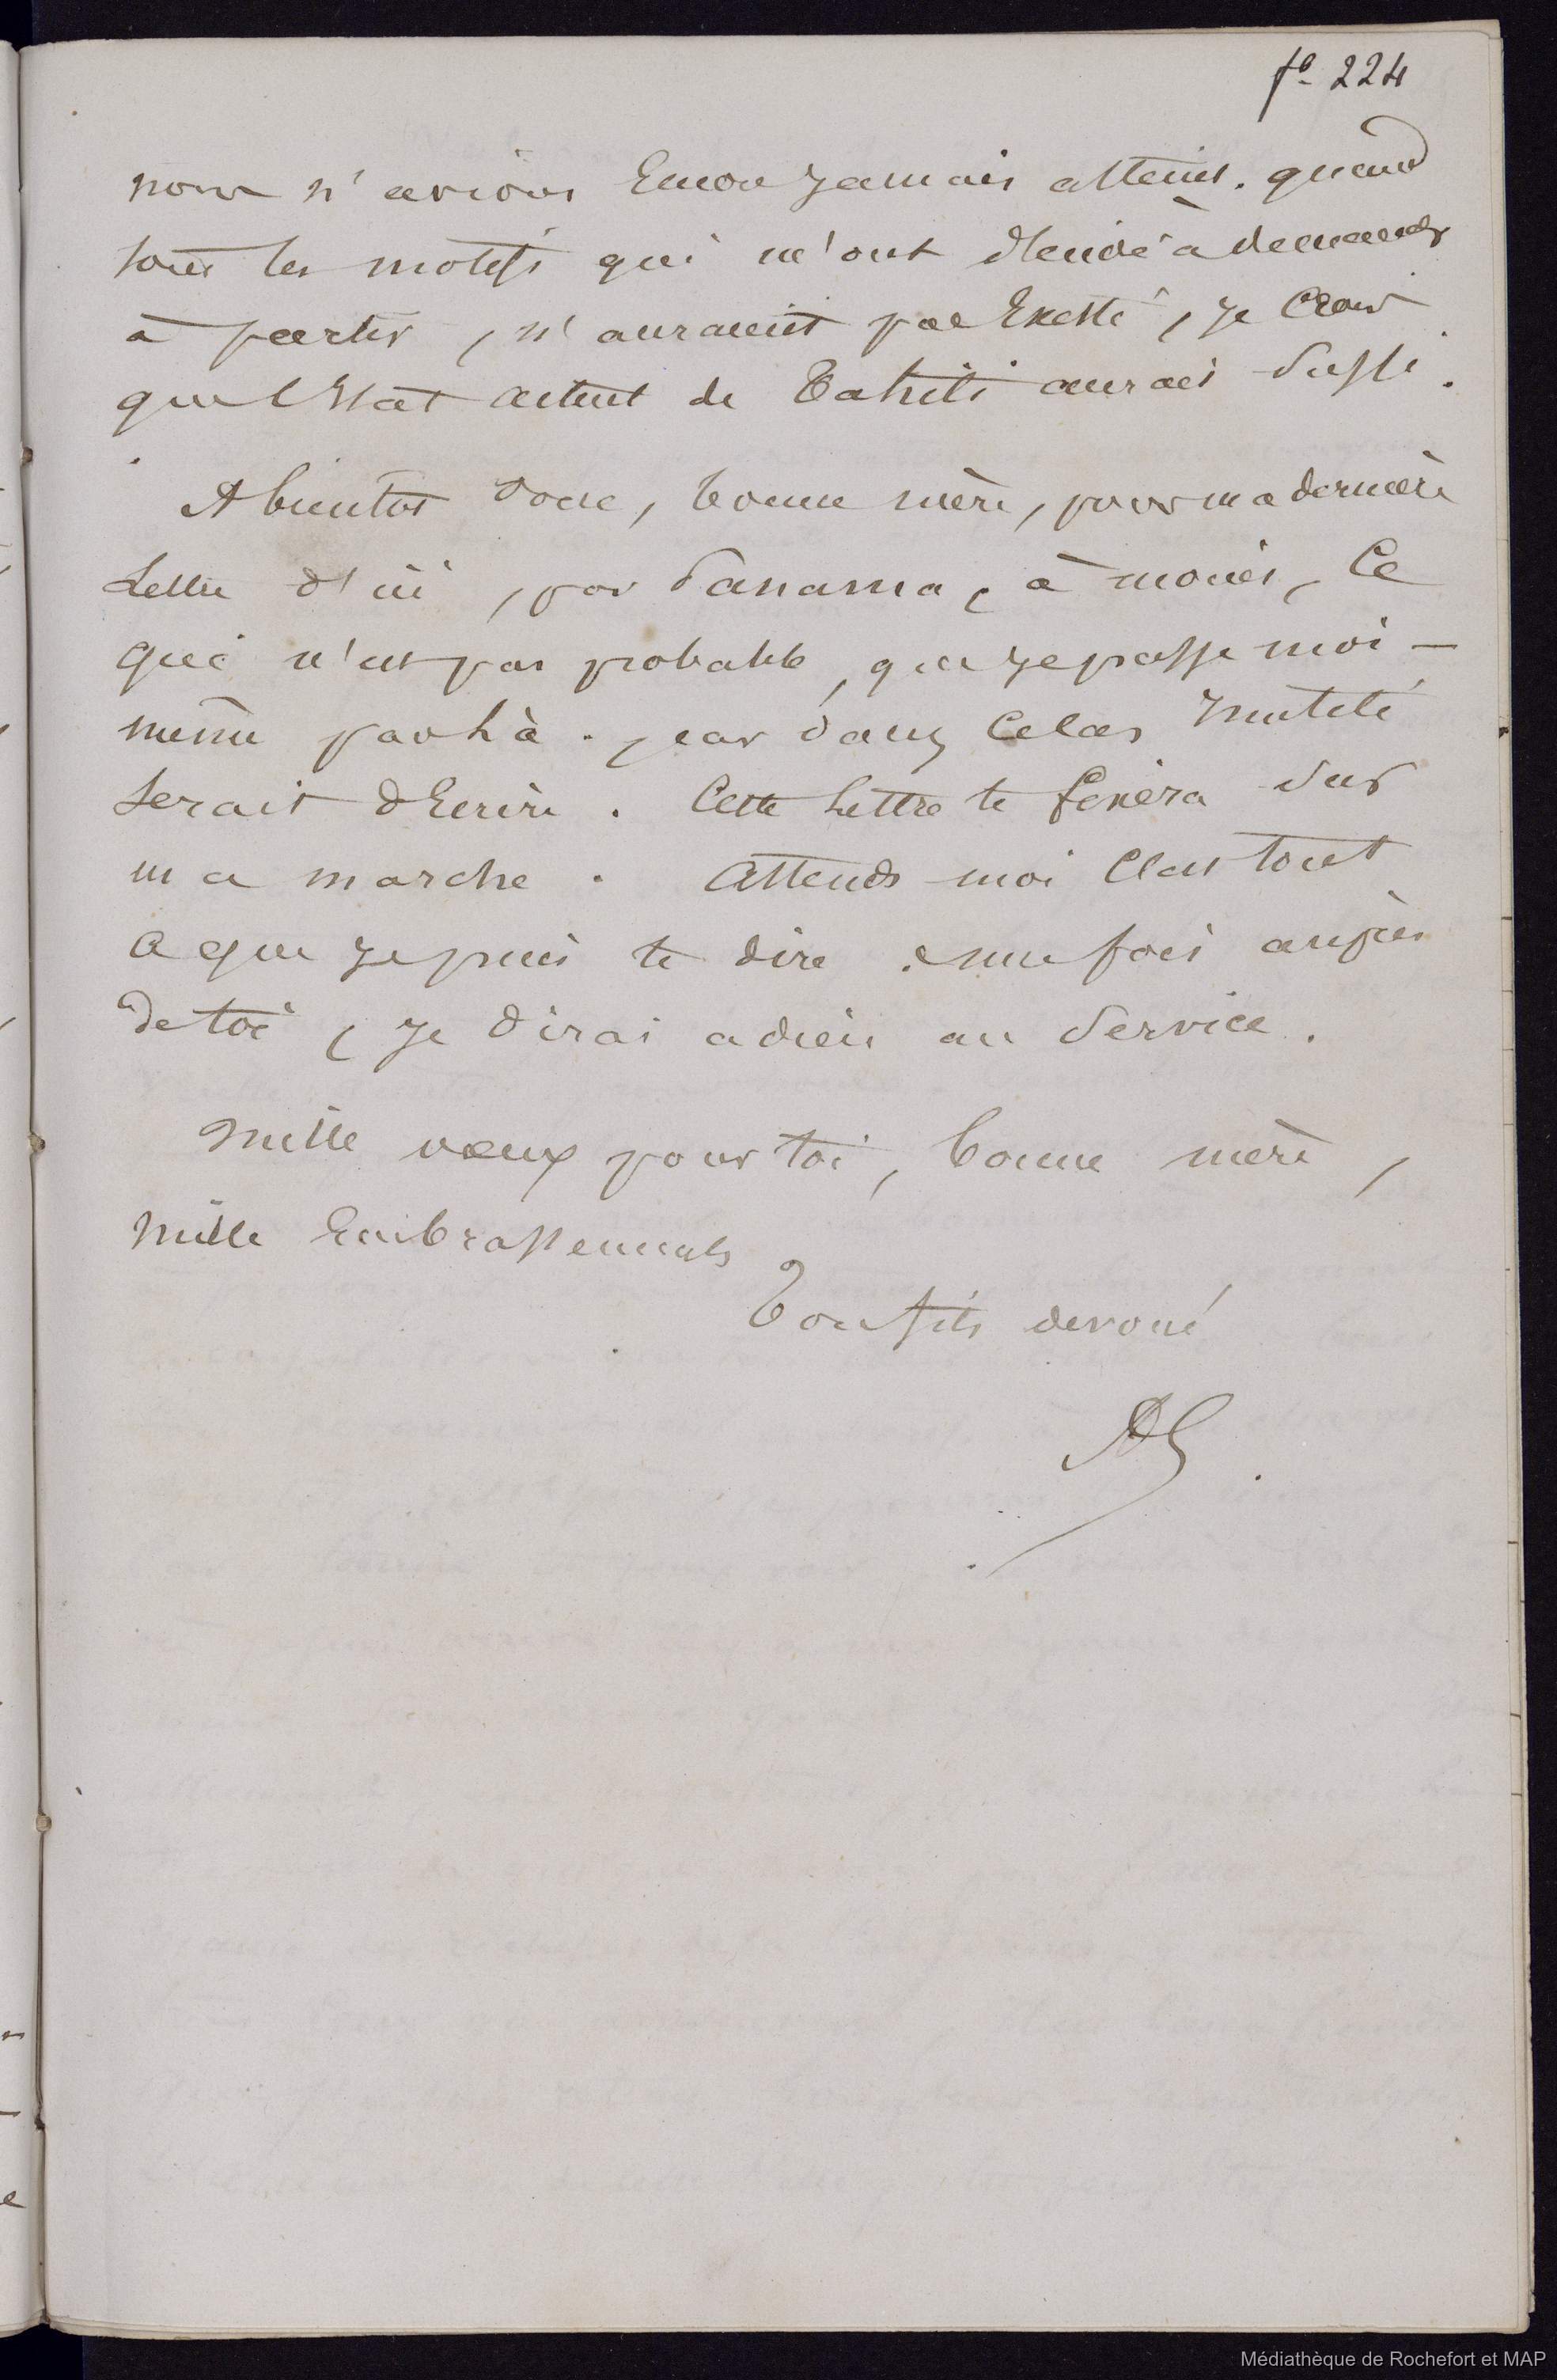 fº 224
nous n'avions Encor jamais atteint. quand
tous les motifs qui m'ont decidé à demander
à partir, n'auraient pas Existé, je Crois
que l'Etat actuel de Tahiti aurait suffi.
A bientot donc, bonne mère, pour ma dernière
Lettre d'ici, par Panama, à moins, Ce
qui n'est pas probable, que je passe moi-
même par là. car dans ce cas Inutile
serait d'Ecrire. Cette lettre te fixera sur
ma marche. Attends moi C'est tout
ce que je puis te dire. une fois auprès
de toi, je dirai adieu au service.
Mille voeux pour toi, bonne mère,
Mille Embrassements
Ton fils devoué
Médiathèque de Rochefort et MAP